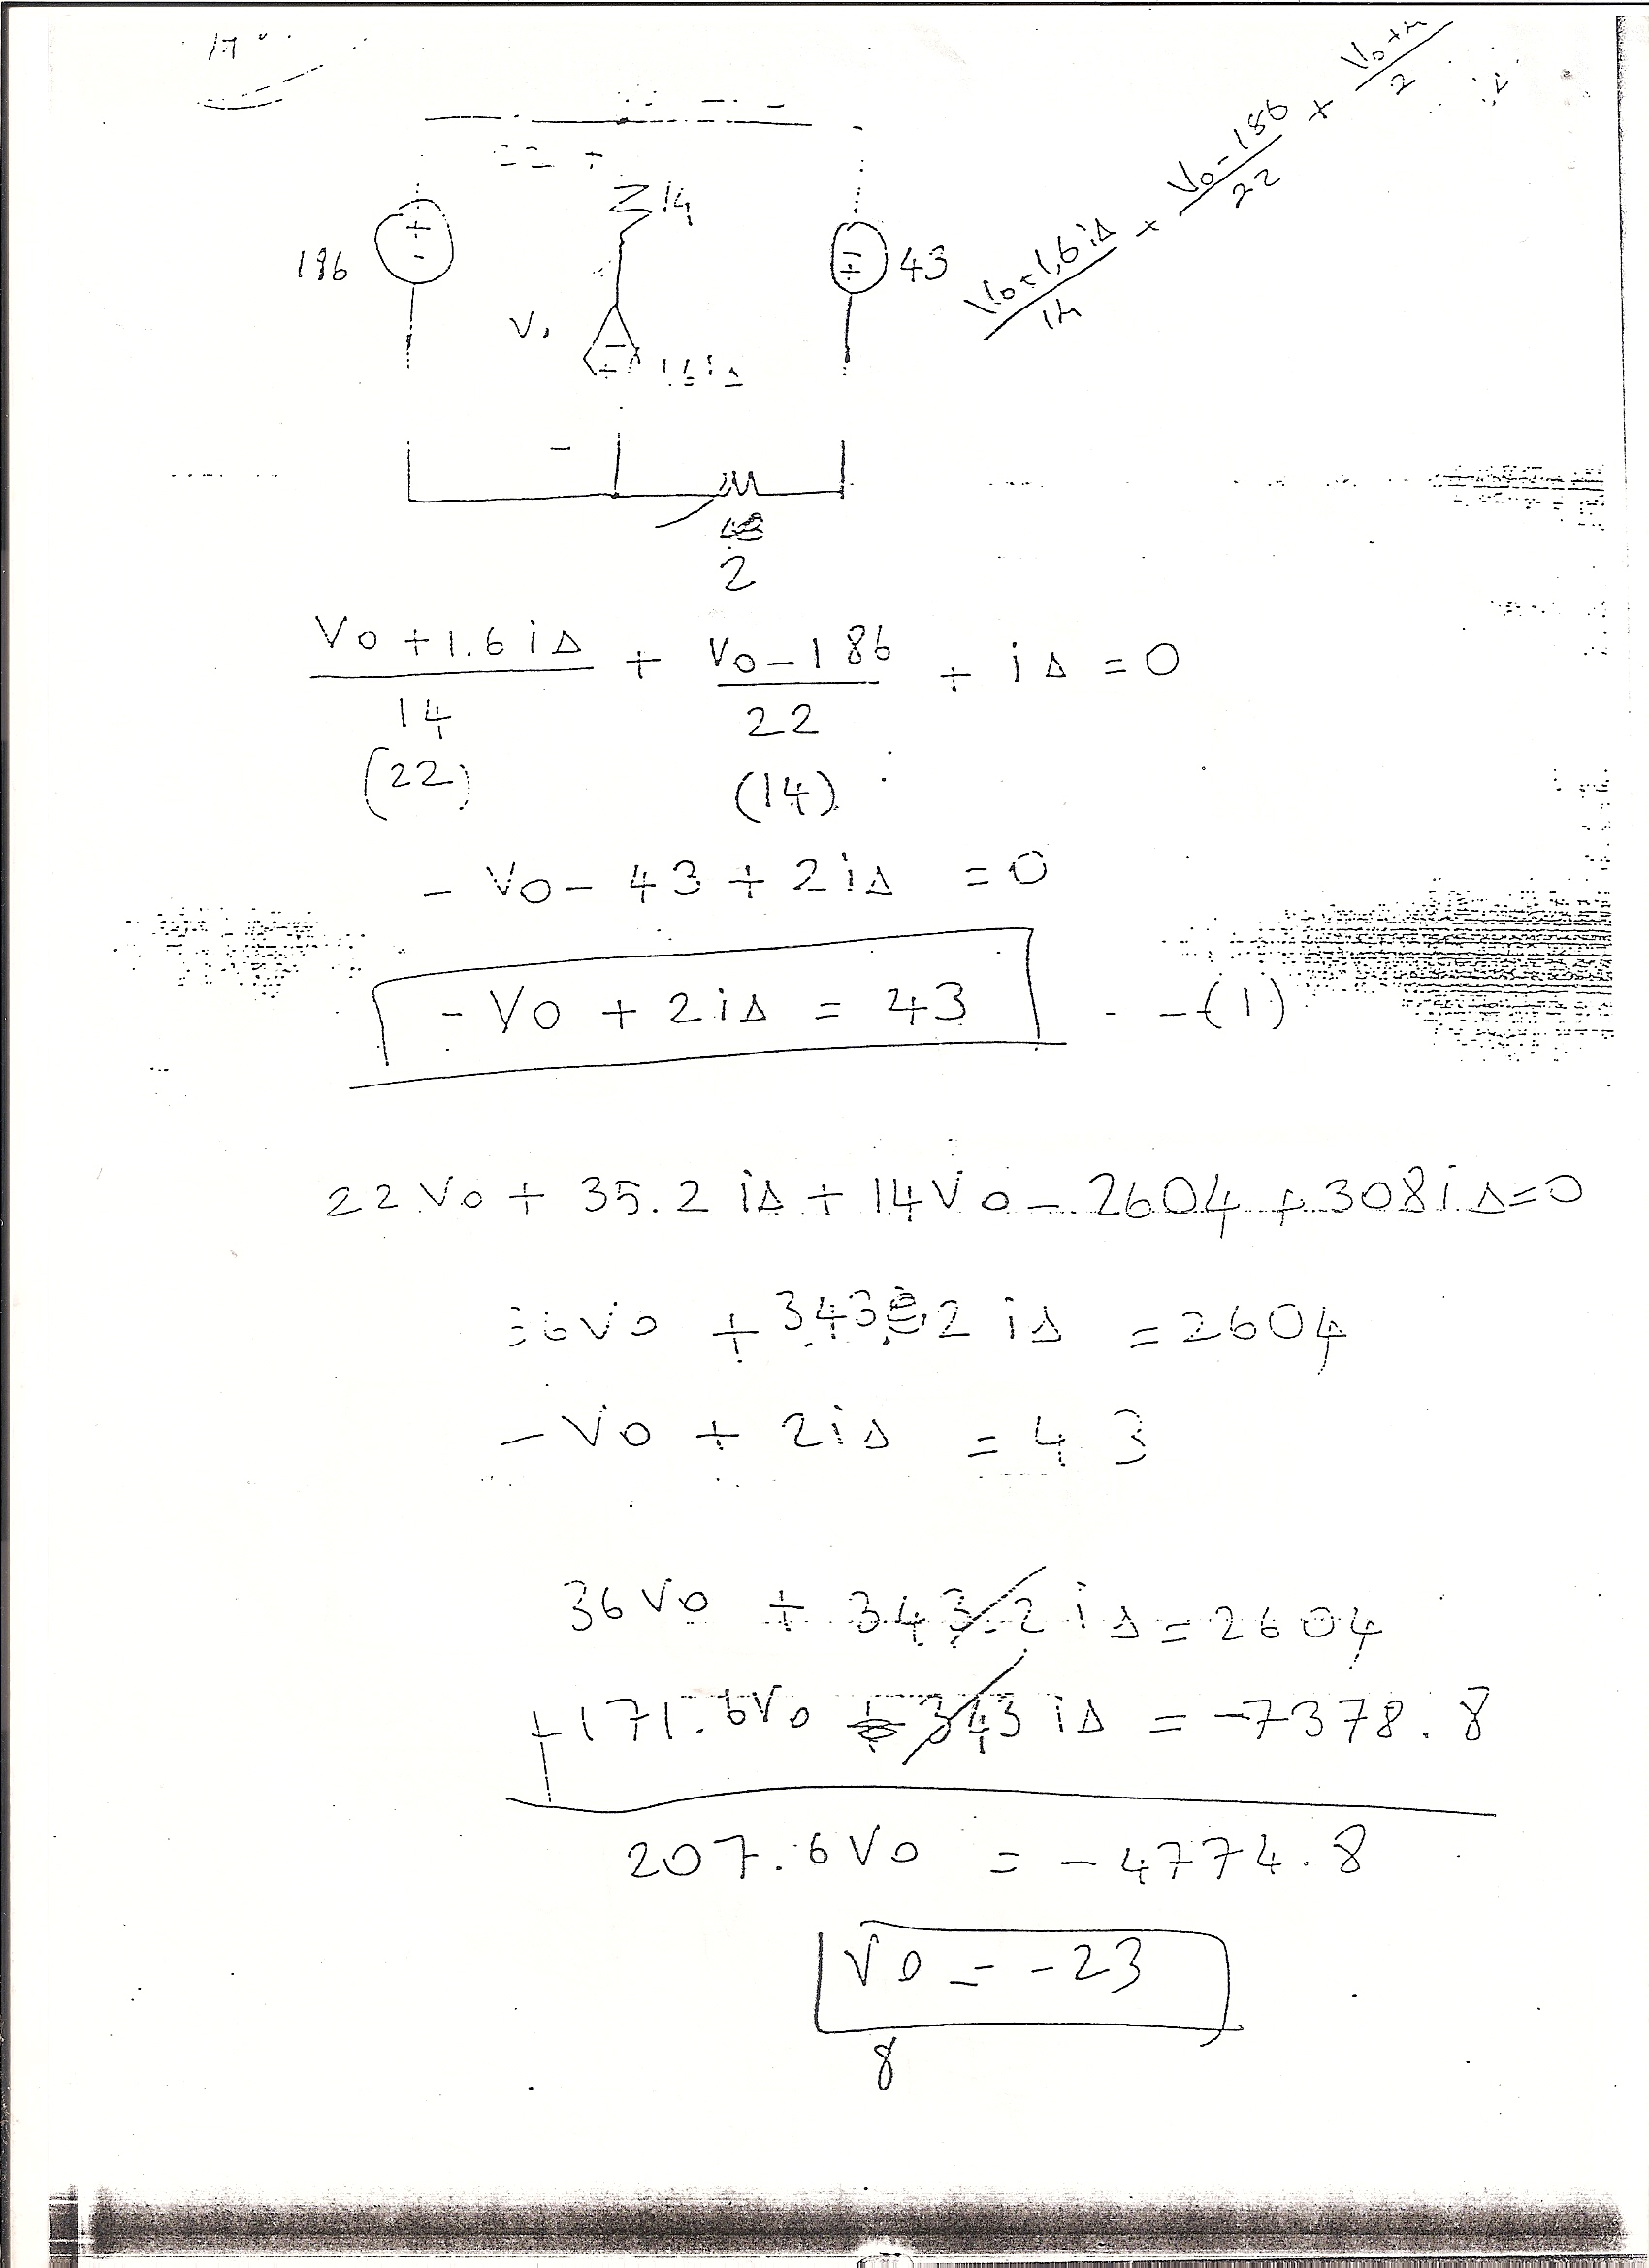 17
22 +
14
186
+
-
-
+
43
Vo
-
+
1.6 iΔ
-
2
Vo+1.6iΔ/14 + Vo-186/22 +
Vo + 1.6 iΔ/14 + Vo - 186/22 + iΔ = 0
(22) (14)
- Vo - 43 + 2iΔ = 0
- Vo + 2iΔ = 43 - - (1)
22Vo + 35.2 iΔ + 14Vo - 2604 + 308iΔ=0
36Vo + 343.2 iΔ = 2604
- Vo + 2iΔ = 43
36Vo + 343.2 iΔ = 2604
+171.6Vo 343 iΔ = -7378.8
207.6Vo = -4774.8
Vo = -23
8